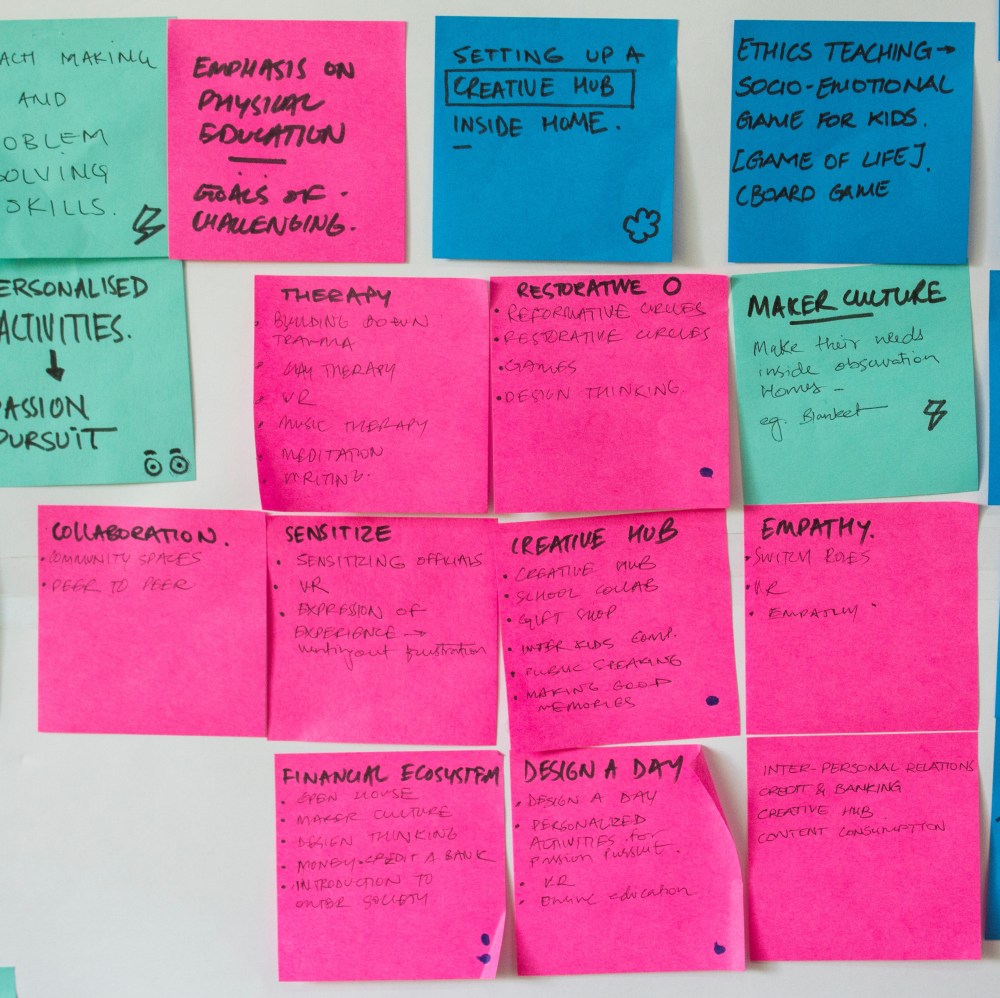 ACH MAKING
AND
OBLEM
OLVING
SKILLS.
EMPHASIS ON
PHYSICAL
EDUCATION
GOALS OF
CHALLENGING.
SETTING UP A
CREATIVE HUB
INSIDE HOME.
ETHICS TEACHING→
SOCIO-EMOTIONAL
GAME FOR KIDS.
[GAME OF LIFE].
(BOARD GAME
ERSONALISED
ACTIVITIES.
↓
PASSION
PURSUIT
THERAPY
• BUILDING DOWN
TRAUMA
• THERAPY
• VR
• MUSIC THERAPY
• MEDITATION
• WRITING.
RESTORATIVE O
• REFORMATIVE CIRCLES
• RESTORATIVE CIRCLES
• GAMES
• DESIGN THINKING.
MAKER CULTURE
Make their needs
inside observation
Homes –
eg. Blanket
COLLABORATION.
• COMMUNITY SPACES
• PEER TO PEER
SENSITIZE
• SENSITIZING OFFICIALS
• VR
• EXPRESSION OF
EXPERIENCE →
venting out frustration
CREATIVE HUB
• CREATIVE HUB
• SCHOOL COLLAB
• GIFT SHOP
• INTER KIDS COMP.
• PUBLIC SPEAKING
• MAKING GOOD
MEMORIES
EMPATHY.
• SWITCH ROLES
• VR
• EMPATHY
FINANCIAL ECOSYSTEM
• OPEN HOUSE
• MAKER CULTURE
• DESIGN THINKING
• MONEY-CREDIT & BANK
• INTRODUCTION TO
OUTER SOCIETY.
DESIGN A DAY
• DESIGN A DAY
• PERSONALIZED
ACTIVITIES for
passion pursuit.
• VR
• Online education
INTER-PERSONAL RELATIONS
CREDIT & BANKING
CREATIVE HUB
CONTENT CONSUMPTION